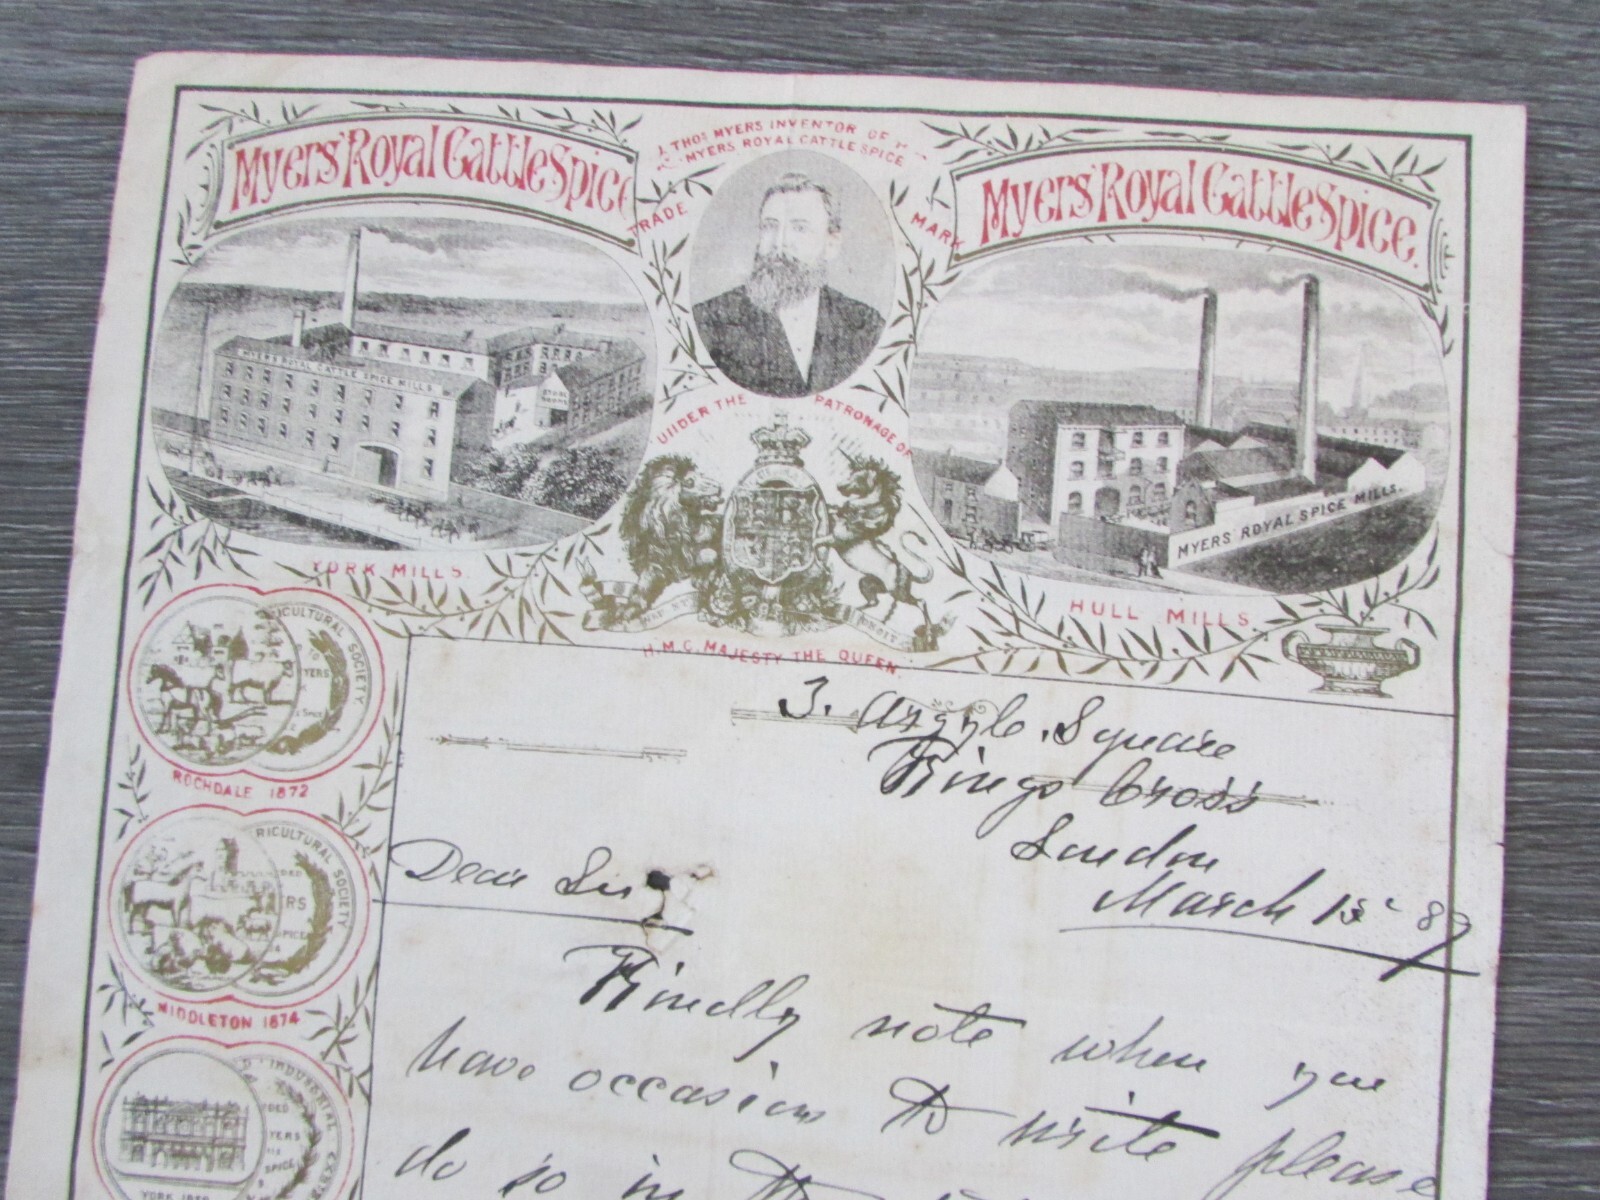 Myers' Royal Cattle Spice
J. THOS MYERS INVENTOR OF
MYERS ROYAL CATTLE SPICE
TRADE MARK
Myers' Royal Cattle Spice.
MYERS ROYAL CATTLE SPICE MILLS.
UNDER THE PATRONAGE OF
MYERS' ROYAL SPICE MILLS.
YORK MILLS.
HULL MILLS
H.M.G. MAJESTY THE QUEEN.
RICULTURAL SOCIETY
YERS
SPICE
ROCHDALE 1872
3. Argyle Square
Kings Cross
London
March 1st 89
Dear Sir
RICULTURAL SOCIETY
DED
RS
SPICE
MIDDLETON 1874
Kindly note when you
have occasion to write please
do so in
INDUSTRIAL
DED
YERS
SPICE
YORK